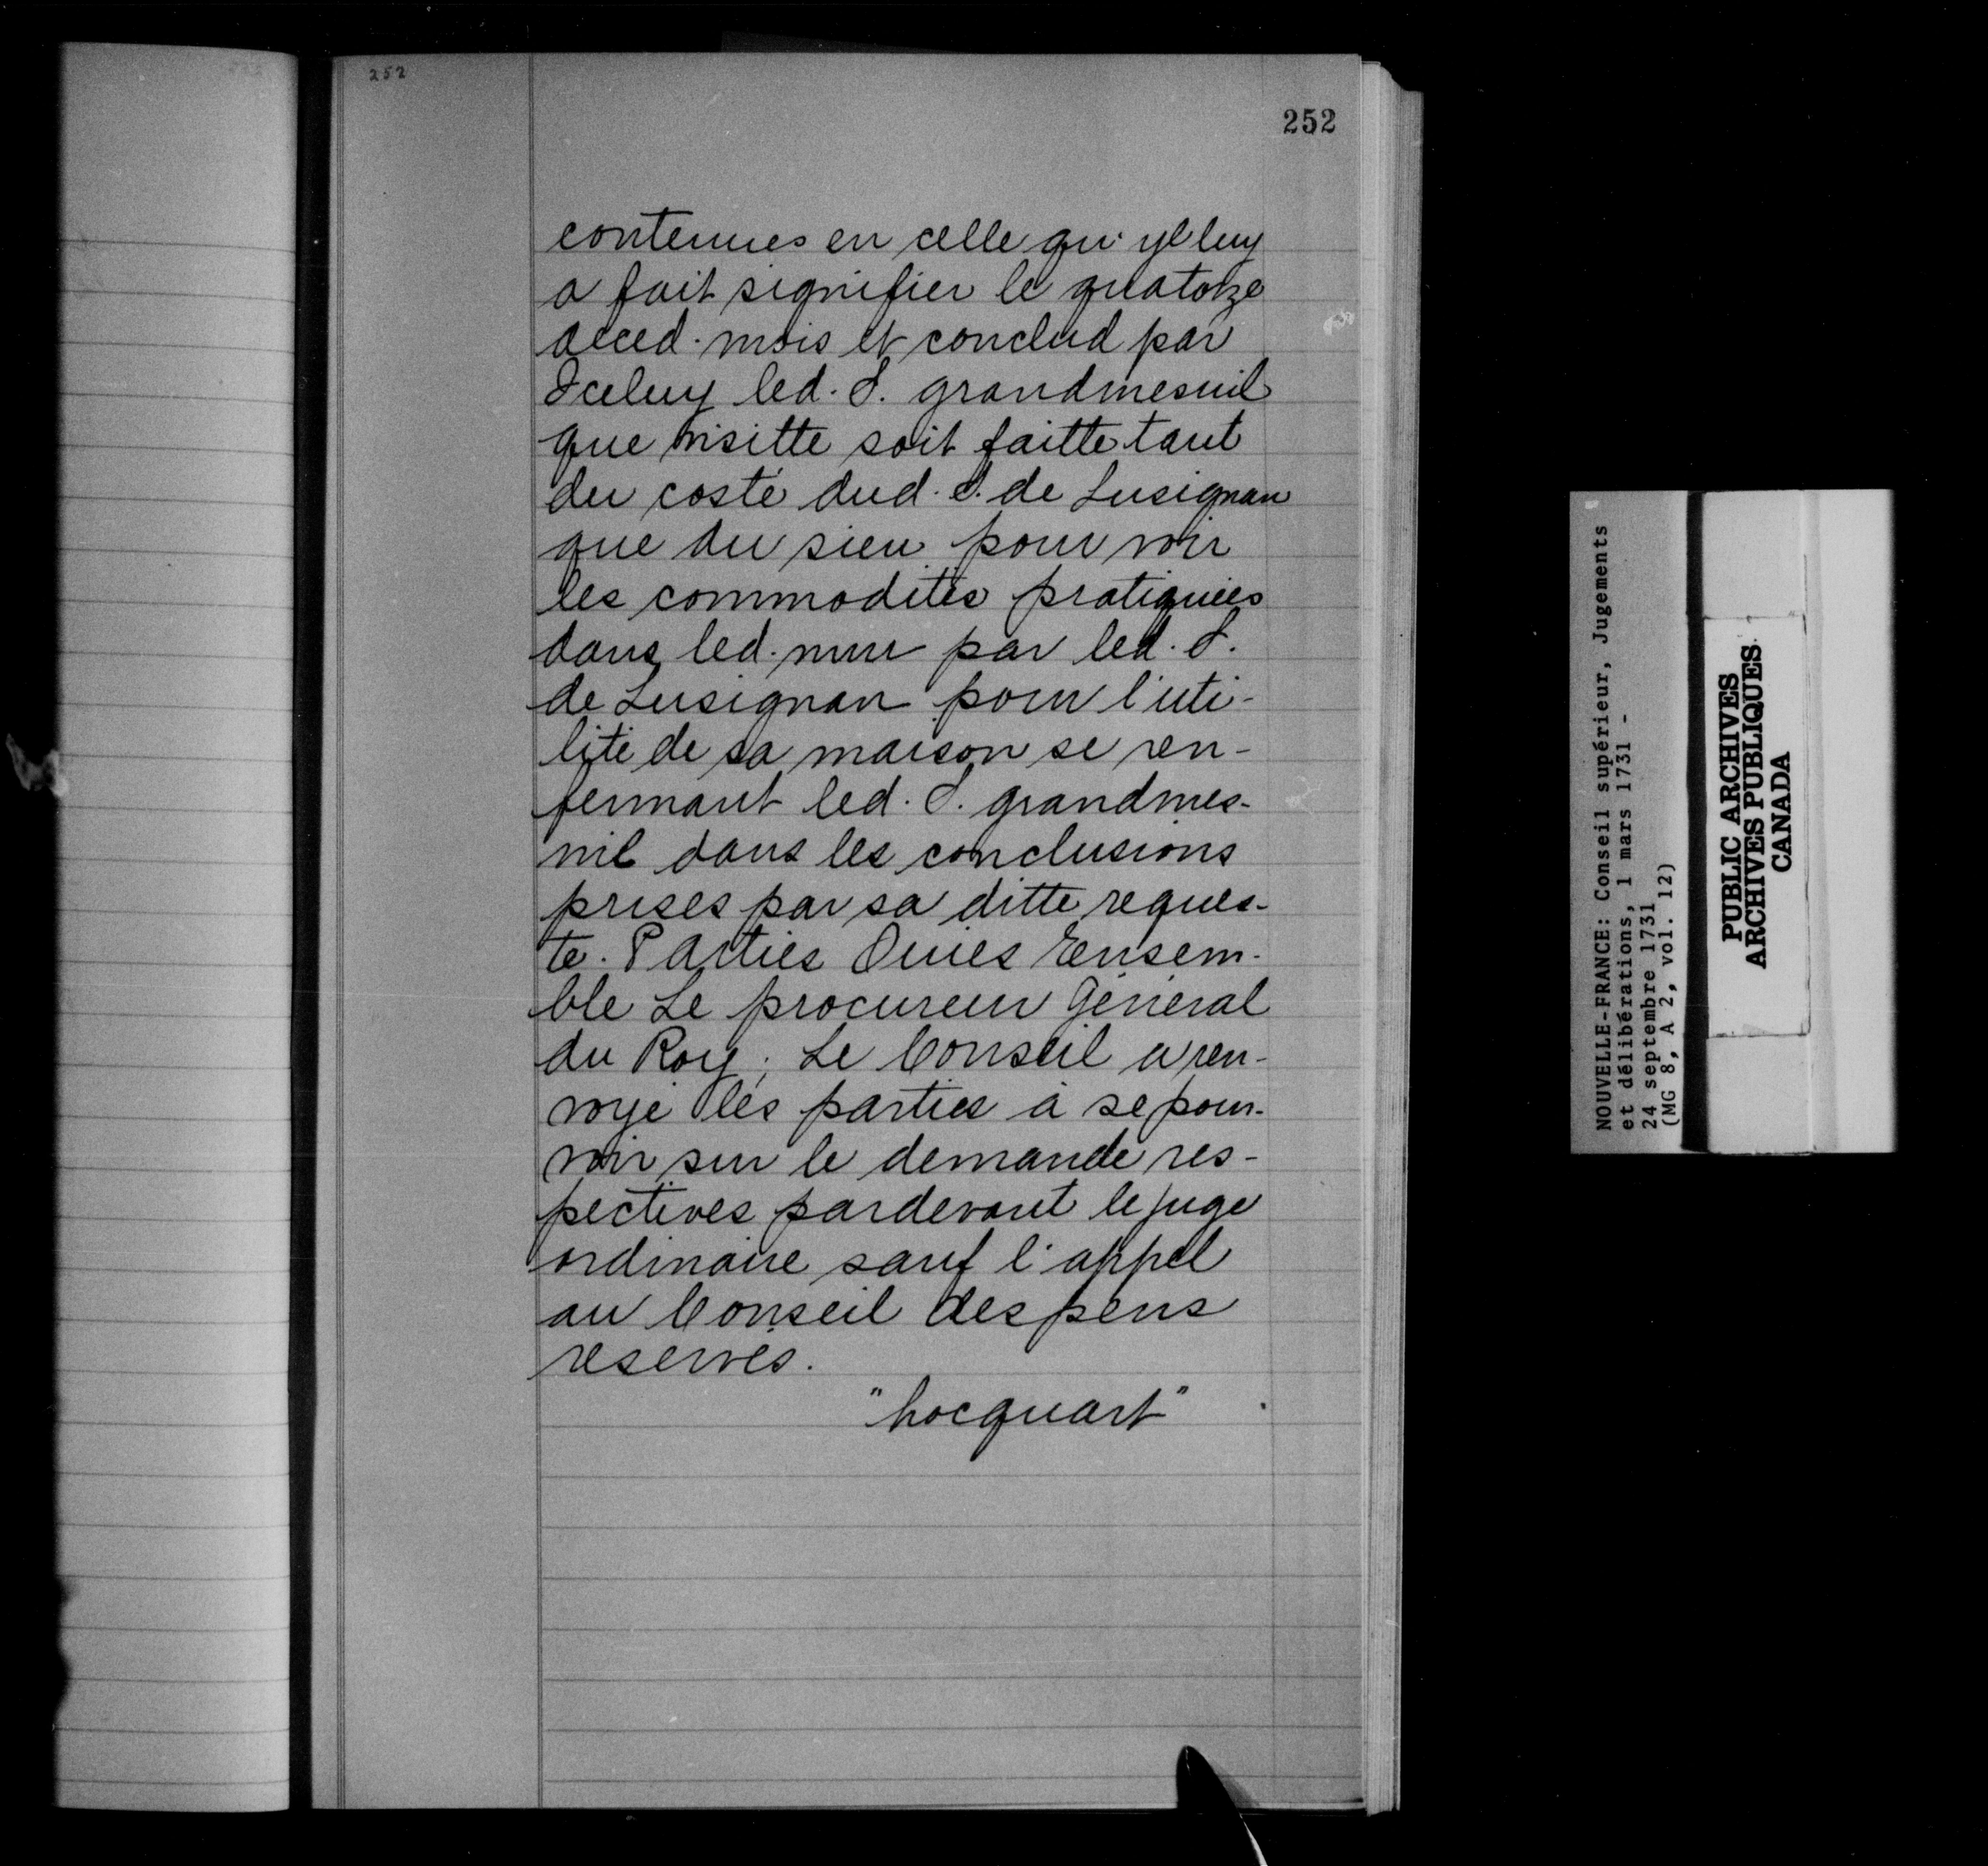 252
252
contenues en celle qu'yl luy
a fait signifier le quatorze
deced. mois et conclud par
Iceluy led. S. grandmesnil
que visitte soit faitte tant
du costé dud. S. de Lusignan
que du sien pour voir
les commodités pratiquées
dans led. mur par led. S.
de Lusignan pour l'uti-
lité de sa maison se ren-
fermant led. S. grandmes-
nil dans les conclusions
prises par sa ditte reques-
te. Parties Ouies Ensem-
ble Le procureur Général
du Roy; Le Conseil a ren-
voyé les parties à se pour-
voir sur le demande res-
pectives pardevant le juge
ordinaire sauf l'appel
au Conseil despens
reservés.
"hocquart"
NOUVELLE-FRANCE: Conseil supérieur, Jugements
et délibérations, 1 mars 1731 -
24 septembre 1731
(MG 8, A 2, vol. 12)
PUBLIC ARCHIVES
ARCHIVES PUBLIQUES
CANADA